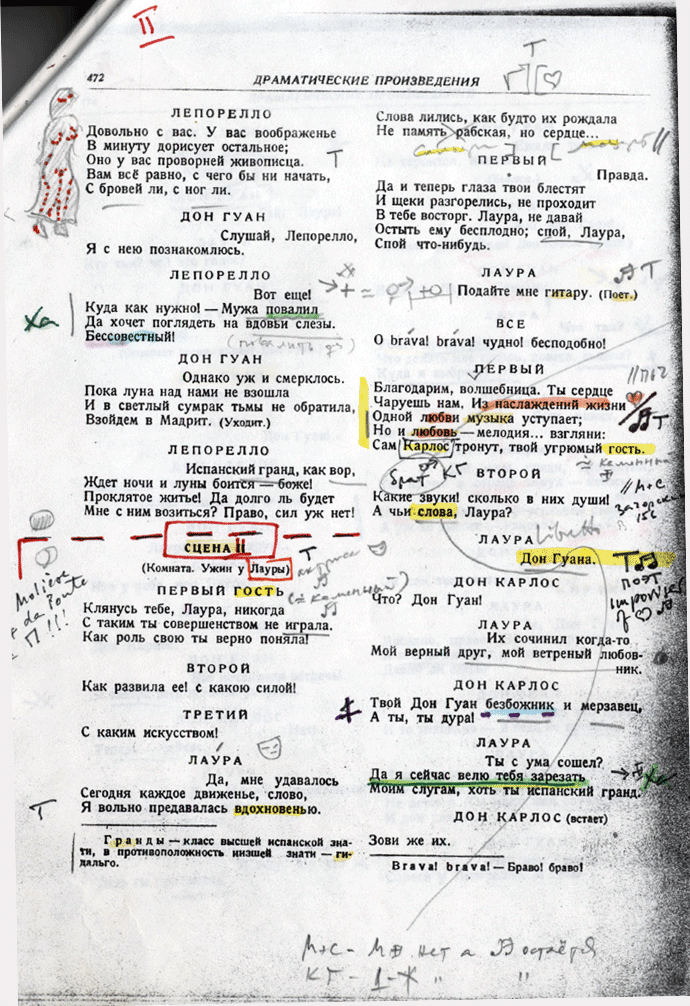 II
472
ДРАМАТИЧЕСКИЕ ПРОИЗВЕДЕНИЯ
Т
ЛЕПОРЕЛЛО
Довольно с вас. У вас воображенье
В минуту дорисует остальное;
Оно у вас проворней живописца.
Т
Вам всё равно, с чего бы ни начать,
С бровей ли, с ног ли.
ДОН ГУАН
Слушай, Лепорелло,
Я с нею познакомлюсь.
ЛЕПОРЕЛЛО
Вот еще!
Куда как нужно! — Мужа повалил
Ха
Да хочет поглядеть на вдовьи слезы.
Бессовестный!
ДОН ГУАН
Однако уж и смерклось.
Пока луна над нами не взошла
И в светлый сумрак тьмы не обратила,
Взойдем в Мадрит. (Уходит.)
ЛЕПОРЕЛЛО
Испанский гранд, как вор,
Ждет ночи и луны боится — боже!
Проклятое житье! Да долго ль будет
Мне с ним возиться? Право, сил уж нет!
СЦЕНА II
(Комната. Ужин у Лауры)
Т
Moliere
da Ponte
П!!!
ПЕРВЫЙ ГОСТЬ
Клянусь тебе, Лаура, никогда
С таким ты совершенством не играла.
Как роль свою ты верно поняла!
ВТОРОЙ
Как развила ее! с какою силой!
ТРЕТИЙ
С каким искусством!
ЛАУРА
Да, мне удавалось
Сегодня каждое движенье, слово,
Т
Я вольно предавалась вдохновенью.
Гранды — класс высшей испанской зна-
ти, в противоположность низшей знати — ги-
дальго.
Слова лились, как будто их рождала
Не память рабская, но сердце...
ПЕРВЫЙ
Правда.
Да и теперь глаза твои блестят
И щеки разгорелись, не проходит
В тебе восторг. Лаура, не давай
Остыть ему бесплодно; спой, Лаура,
Спой что-нибудь.
ЛАУРА
Т
Подайте мне гитару. (Поет.)
ВСЕ
О brava! brava! чудно! бесподобно!
ПЕРВЫЙ
Благодарим, волшебница. Ты сердце
Чаруешь нам. Из наслаждений жизни
Одной любви музыка уступает;
Но и любовь — мелодия... взгляни:
Сам Карлос тронут, твой угрюмый гость.
брат
КГ
ВТОРОЙ
Какие звуки! сколько в них души!
А чьи слова, Лаура?
М+С
ЛАУРА
Libretto
Дон Гуана.
поэт
ДОН КАРЛОС
Что? Дон Гуан!
ЛАУРА
Их сочинил когда-то
Мой верный друг, мой ветреный любов-
ник.
ДОН КАРЛОС
Твой Дон Гуан безбожник и мерзавец,
А ты, ты дура!
ЛАУРА
Ты с ума сошел?
Да я сейчас велю тебя зарезать
Ха
Моим слугам, хоть ты испанский гранд.
ДОН КАРЛОС (встает)
Зови же их.
Brava! brava! — Браво! браво!